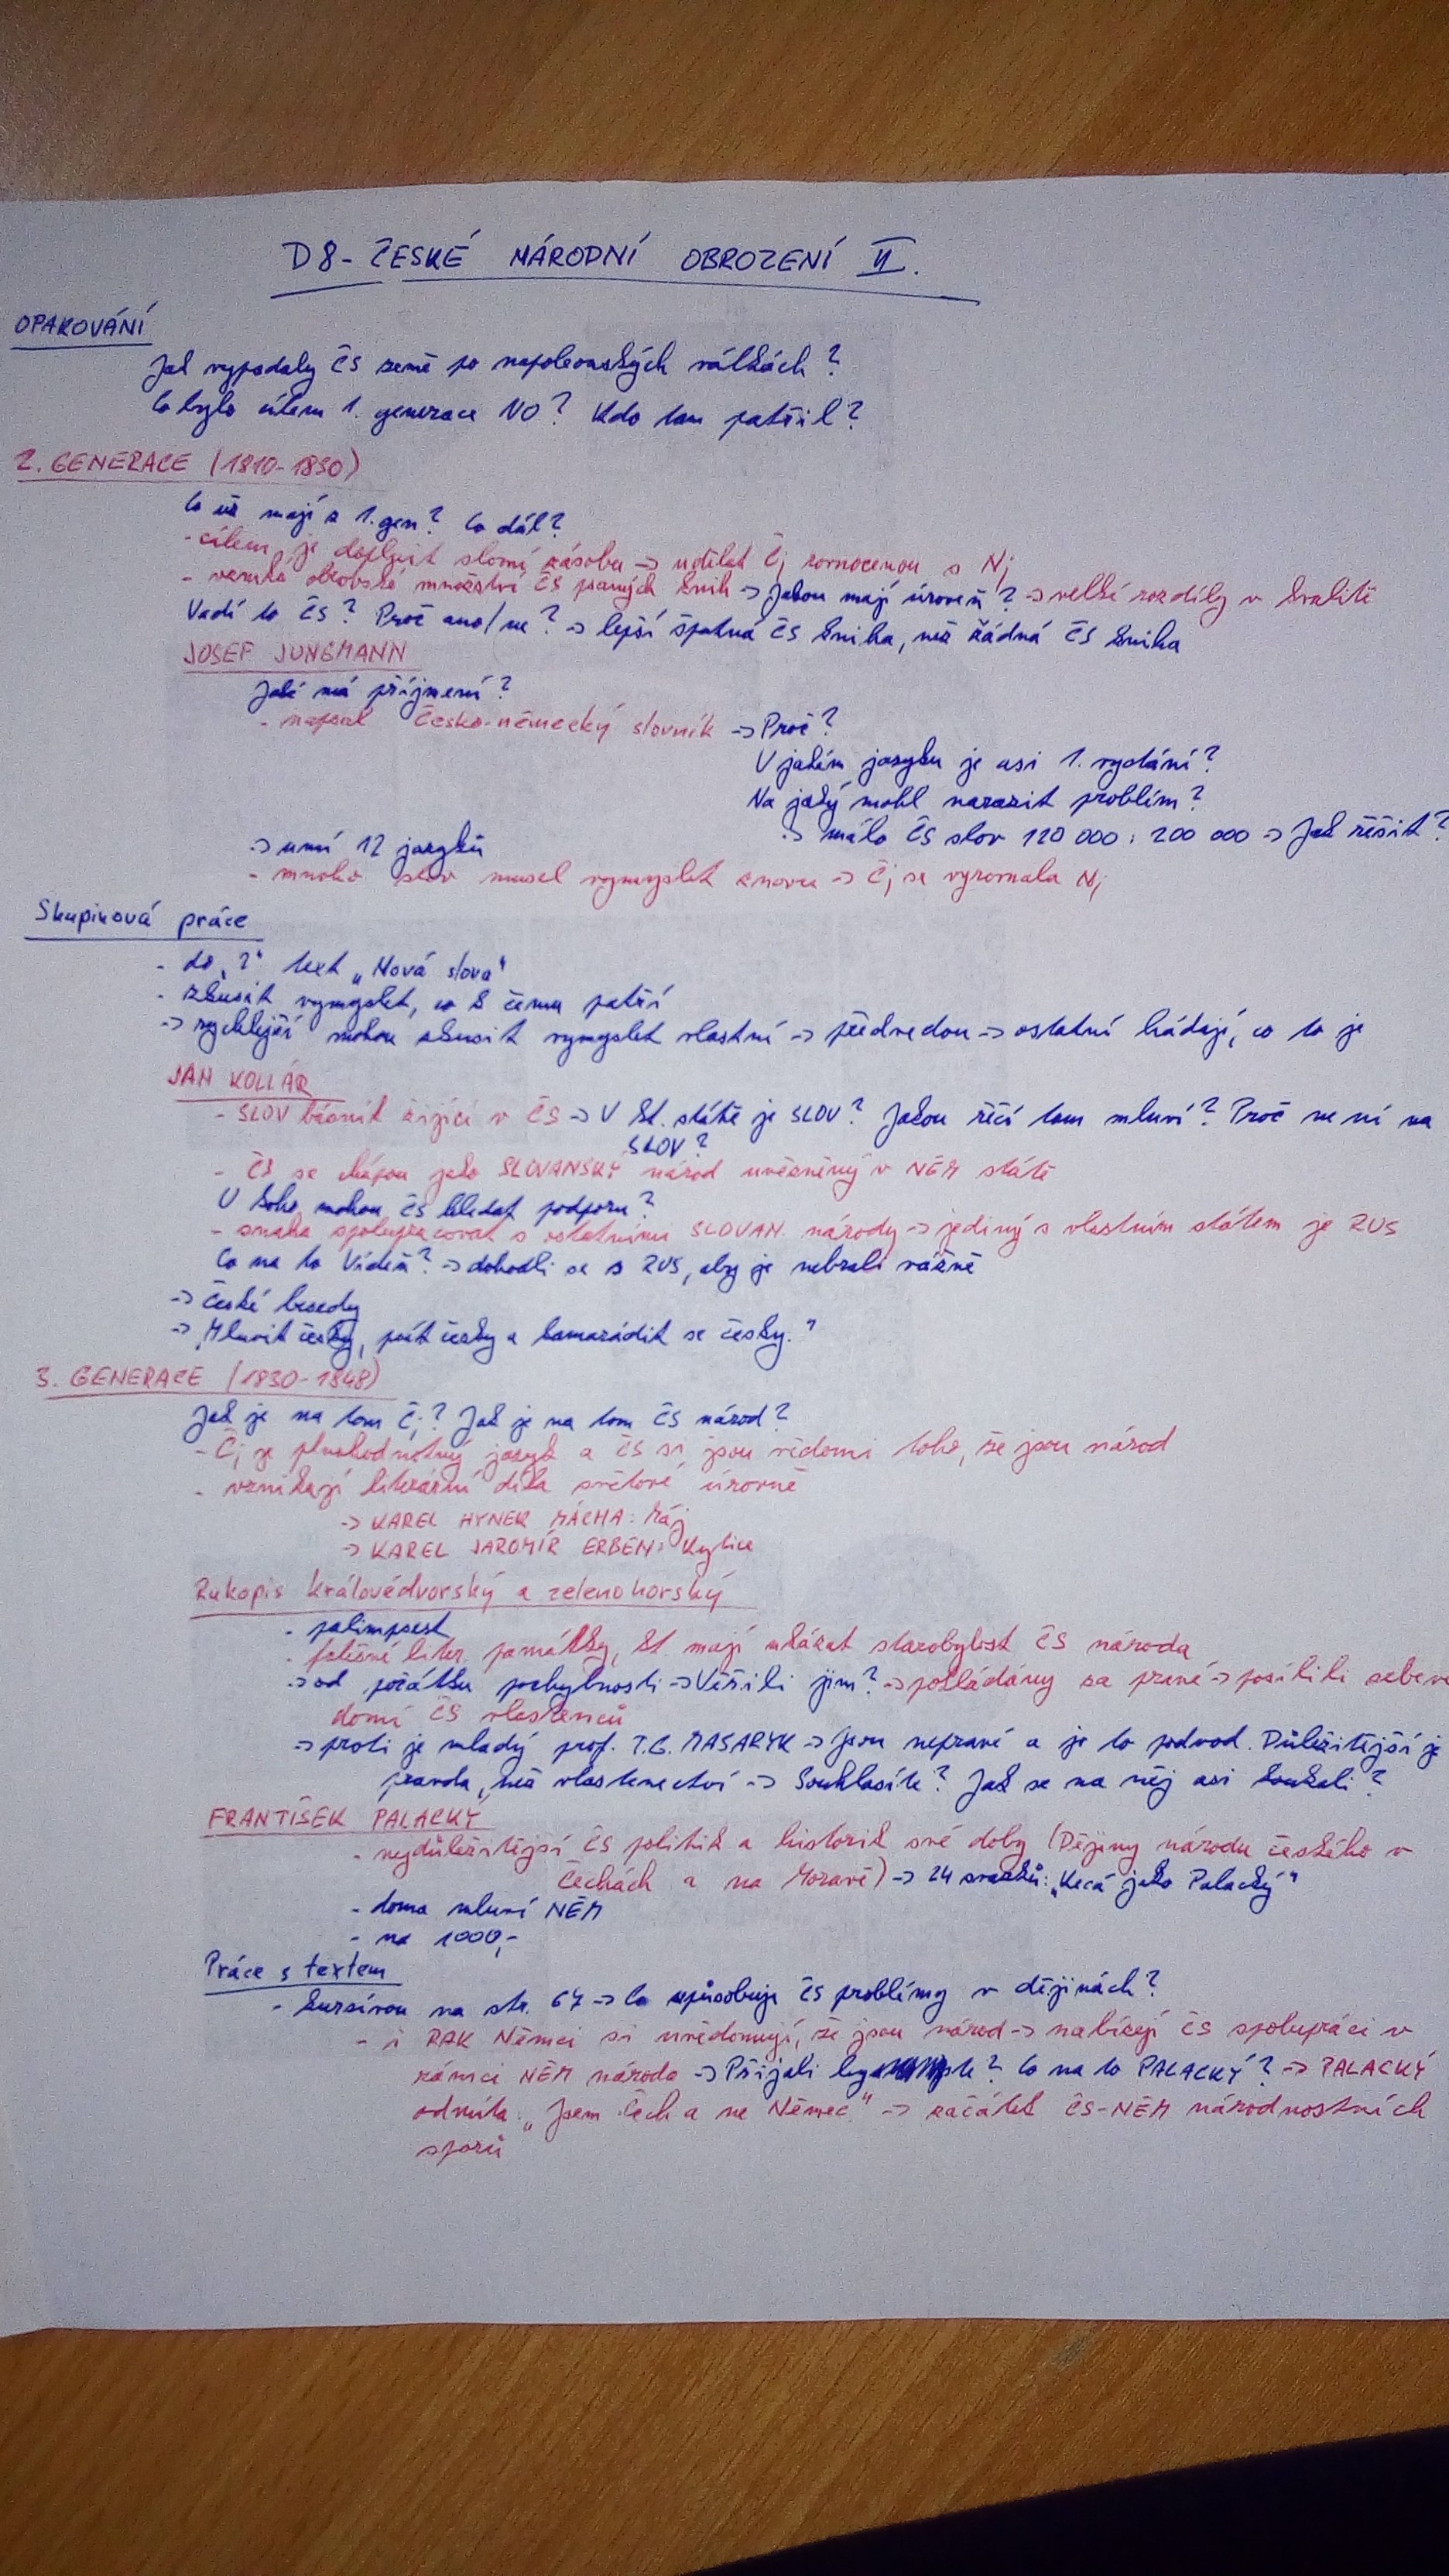 D8 - ČESKÉ NÁRODNÍ OBROZENÍ II.
OPAKOVÁNÍ
Jak vypadaly ČS země po napoleonských válkách?
Co bylo cílem 1. generace NO? Kdo tam patřil?
2. GENERACE (1810-1830)
Co už mají z 1. gen? Co dál?
- cílem je doplnit slovní zásobu -> udělat Čj rovnocenou s Nj
- vzniká obrovské množství ČS psaných knih -> Jakou mají úroveň? -> velké rozdíly v kvalitě
Vadí to ČS? Proč ano/ne? -> lepší špatná ČS kniha, než žádná ČS kniha
JOSEF JUNGMANN
Jaké má příjmení?
- napsal Česko-německý slovník -> Proč?
V jakém jazyku je asi 1. vydání?
Na jaký mohl narazit problém?
-> málo ČS slov 120 000 : 200 000 -> Jak řešit?
-> umí 12 jazyků
- mnoho slov musel vymyslet znovu -> Čj se vyrovnala Nj
Skupinová práce
- do „?“ text „Nová slova“
- zkusit vymyslet, co k čemu patří
-> rychlejší mohou zkusit vymyslet vlastní -> předvedou -> ostatní hádají, co to je
JÁN KOLLÁR
- SLOV básník žijící v ČS -> V kt. státě je SLOV? Jakou řečí tam mluví? Proč ne ní na
SLOV?
- ČS se chápou jako SLOVANSKÝ národ uvězněný v NĚM státě
U koho mohou ČS hledat podporu?
- snaha spolupracovat s ostatními SLOVAN. národy -> jediný s vlastním státem je RUS
Co na to Vídeň? -> dohodli se s RUS, aby je nebrali vážně
-> České besedy
-> „Mluvit česky, pít česky a kamarádit se česky.“
3. GENERACE (1830-1848)
Jak je na tom Čj? Jak je na tom ČS národ?
- Čj je plnohodnotný jazyk a ČS si jsou vědomi toho, že jsou národ
- vznikají literární díla světové úrovně
-> KAREL HYNEK MÁCHA: Máj
-> KAREL JAROMÍR ERBEN: Kytice
Rukopis královédvorský a zelenohorský
- palimpsest
- falešné liter. památky, kt. mají ukázat starobylost ČS národa
-> od počátku pochybnosti -> Věřili jim? -> pokládány za pravé -> posílili sebevě
domí ČS vlastenců
-> proti je mladý prof. T.G. MASARYK -> Jsou nepravé a je to podvod. Důležitější je
pravda, než vlastenectví -> Souhlasíte? Jak se na něj asi koukali?
FRANTIŠEK PALACKÝ
- nejdůležitější ČS politik a historik své doby (Dějiny národu českého v
Čechách a na Moravě) -> 24 svazků: „Kecá jako Palacký“
- doma mluví NĚM
- na 1000,-
Práce s textem
- kurzívou na str. 67 -> Co způsobuje ČS problémy v dějinách?
- i RAK Němci si uvědomují, že jsou národ -> nabízejí ČS spolupráci v
rámci NĚM národa -> Přijali byste? Co na to PALACKÝ? -> PALACKÝ
odmítá: „Jsem Čech a ne Němec“ -> začátek ČS-NĚM národnostních
sporů